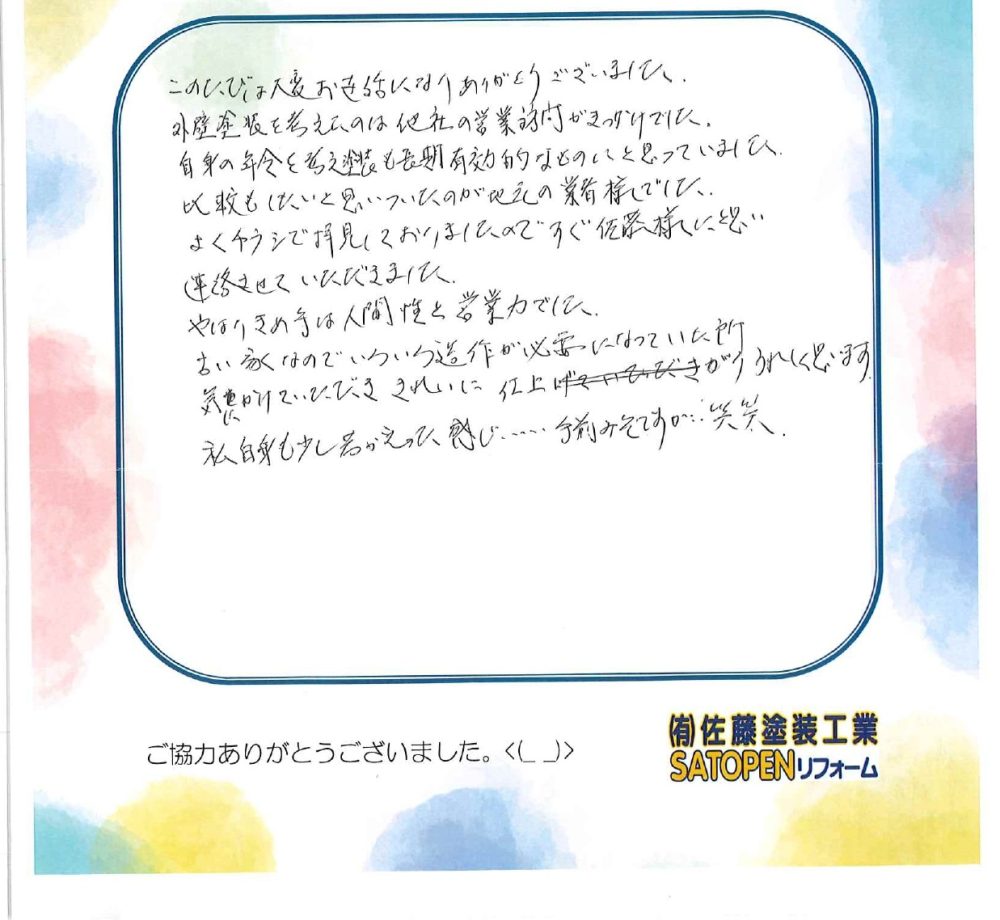 このたびは大変お世話になりありがとうございました。
外壁塗装を考えたのは他社の営業訪問がきっかけでした。
自身の年令を考え塗装も長期有効的なものにと思っていました。
比較もしたいと思いついたのが地元の業者様でした。
よくチラシで拝見しておりましたのですぐ佐藤様にと思い
連絡させていただきました。
やはりきめ手は人間性と営業力でした。
古い家なのでいろいろ造作が必要になっていた所
気にかけていただき きれいに 仕上がりうれしく思います。
私自身も少し若がえった感じ……手前みそですが…笑笑。
ご協力ありがとうございました。<(_ _)>
㈲佐藤塗装工業
SATOPENリフォーム